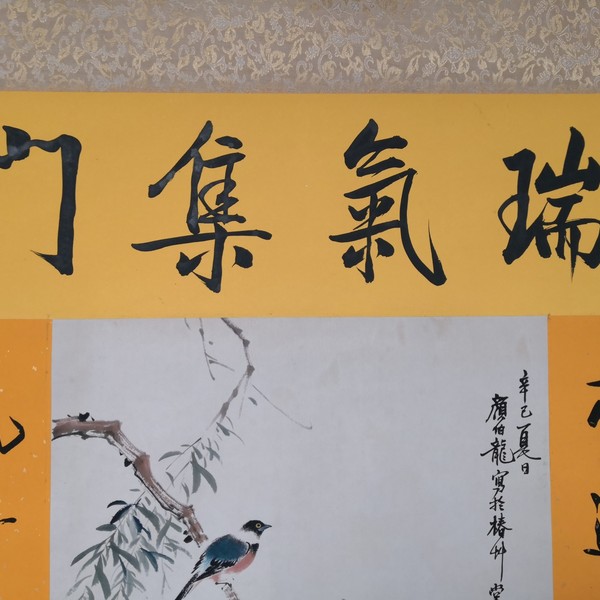 瑞氣集門
辛巳夏日
顏伯龍寫於椿草堂